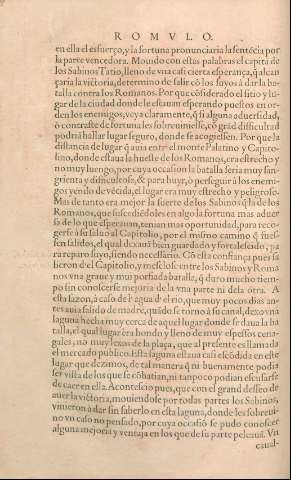 ROMVLO.
en ella el esfuerço, y la fortuna pronunciaria la sentēcia por
la parte vencedora. Mouido con estas palabras el capitā de
los Sabinos Tatio, lleno de vna casi cierta esperança, q̄ alcan
çaria la victoria, determino de salir cō los suyos à dar la ba-
talla contra los Romanos. Por que cōsiderado el sitio y lu-
gar de la ciudad donde le estauan esperando puestos en or-
den los enemigos, veya claramente, q̄ si alguna aduersidad,
ò contraste de fortuna les sobreuiniesse, cō grā difficultad
podriā hallar lugar seguro, donde se acogiessen. Por que la
distancia de lugar q̄ auia entre el monte Palatino y Capito-
lino, donde estaua la hueste de los Romanos, era estrecho y
no muy luengo, por cuya occasion la batalla seria muy san-
grienta y difficultosa, & para huyr, ò perseguir à los enemi-
gos yendo de vēcida, el lugar era muy estrecho y peligroso.
Mas de tanto era mejor la suerte de los Sabinos q̄ la de los
Romanos, que suscediēdoles en algo la fortuna mas aduer
sa de lo que esperauan, tenian mas oportunidad, para reco-
gerse à su saluo al Capitolio, por el mismo camino q̄ fues-
sen salidos, el qual dexauā bien guardado y fortalescido, pa
ra reparo suyo, siendo necessario. Cō esta confiança pues sa
lieron d'el Capitolio, y mesclose entre los Sabinos y Roma
nos vna graue y muy porfiada batalla, q̄ duro mucho tiem-
po sin conoscerse mejoria de la vna parte ni dela otra. A
esta sazon, à caso de l' agua d' el rio, que muy pocos dias an-
tes auia salido de madre, quādo se torno à su canal, dexo vna
laguna hecha muy cerca de aquel lugar donde se daua la ba
talla, el qual lugar era hondo y lleno de muy espessos cena-
gales, no muy lexos de la plaça, que al presente es llamada
el mercado publico. Esta laguna estaua casi escōdida en este
lugar que dezimos, de tal manera q̄ ni buenamente podia
ser vista de los que se cōbatian, ni tampoco podian escusarse
de caer en ella. Acontescio pues, que con el grand desseo de
auer la victoria, mouiendose por todas partes los Sabinos,
vinieron à dar sin saberlo en esta laguna, donde les sobreui-
no vn caso no pensado, por cuya occasiō se pudo conoscer
alguna mejoria y ventaja en los que de su parte peleauā. Vn
caual-